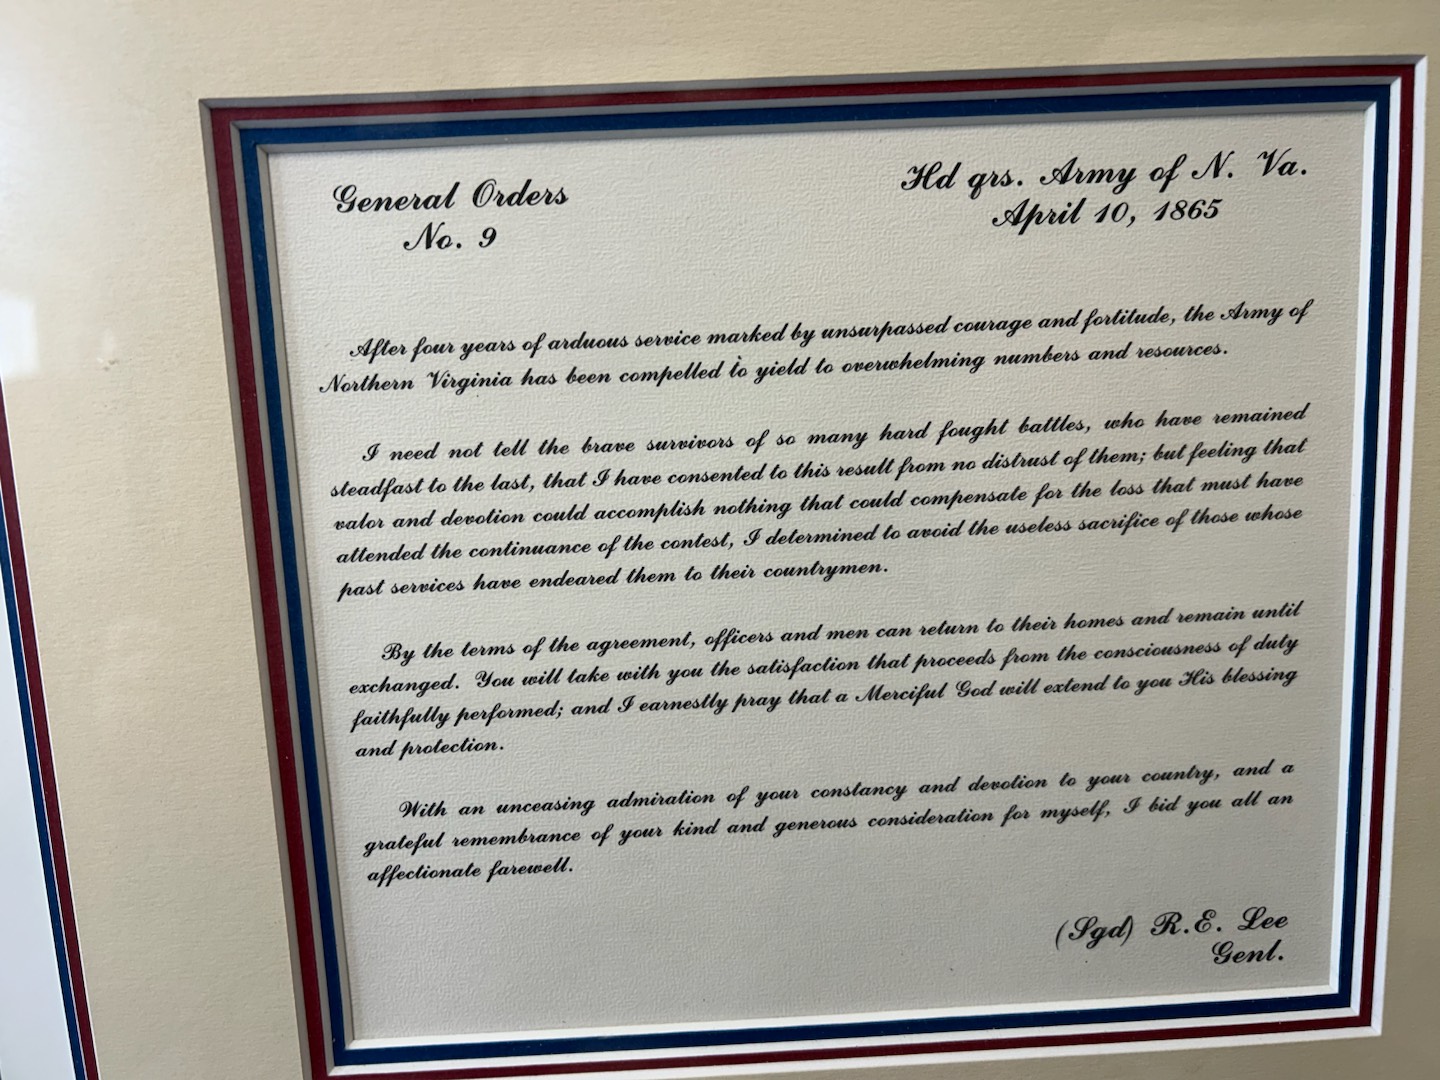 General Orders
No. 9
Hd qrs. Army of N. Va.
April 10, 1865
After four years of arduous service marked by unsurpassed courage and fortitude, the Army of
Northern Virginia has been compelled to yield to overwhelming numbers and resources.
I need not tell the brave survivors of so many hard fought battles, who have remained
steadfast to the last, that I have consented to this result from no distrust of them; but feeling that
valor and devotion could accomplish nothing that could compensate for the loss that must have
attended the continuance of the contest, I determined to avoid the useless sacrifice of those whose
past services have endeared them to their countrymen.
By the terms of the agreement, officers and men can return to their homes and remain until
exchanged. You will take with you the satisfaction that proceeds from the consciousness of duty
faithfully performed; and I earnestly pray that a Merciful God will extend to you His blessing
and protection.
With an unceasing admiration of your constancy and devotion to your country, and a
grateful remembrance of your kind and generous consideration for myself, I bid you all an
affectionate farewell.
(Sgd) R.E. Lee
Genl.